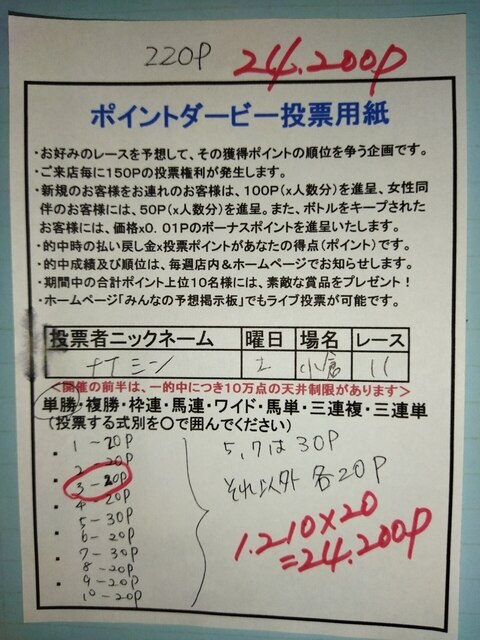 220P 24.200P
ポイントダービー投票用紙
・お好みのレースを予想して、その獲得ポイントの順位を争う企画です。
・ご来店毎に150Pの投票権利が発生します。
・新規のお客様をお連れのお客様は、100P(x人数分)を進呈、女性同
伴のお客様には、50P(x人数分)を進呈。また、ボトルをキープされた
お客様には、価格x0.01Pのボーナスポイントを進呈いたします。
・的中時の払い戻し金x投票ポイントがあなたの得点(ポイント)です。
・的中成績及び順位は、毎週店内&ホームページでお知らせします。
・期間中の合計ポイント上位10名様には、素敵な賞品をプレゼント!
・ホームページ「みんなの予想掲示板」でもライブ投票が可能です。
投票者ニックネーム 曜日 場名 レース
ナイミン 土 小倉 11
<開催の前半は、一的中につき10万点の天井制限があります>
単勝・複勝・枠連・馬連・ワイド・馬単・三連複・三連単
(投票する式別を○で囲んでください)
1-20P
2-20P
3-20P
4-20P
5-30P
6-20P
7-30P
8-20P
9-20P
10-20P
5,7は30P
それ以外 各20P
1.210×20
=24.200P